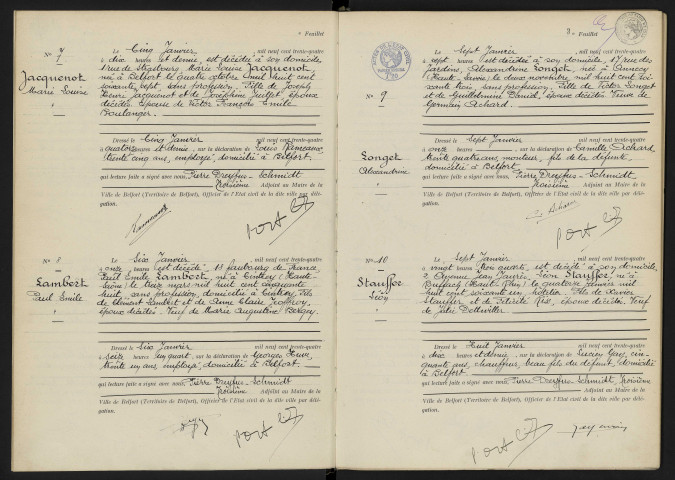 Feuillet
N° 7
Jacquenot
Marie Louise
Le Cinq Janvier, mil neuf cent trente-quatre
à dix heures et demie, est décédée à son domicile,
1 rue de Strasbourg, Marie Louise Jacquenot
née à Belfort le quatre octobre mil huit cent
soixante sept, sans profession, Fille de Joseph
Henri Jacquenot et de Joséphine, époux
décédés. Épouse de Victor François Emile
Boulanger.
Dressé le Cinq Janvier mil neuf cent trente-quatre
à quatorze heures et demie, sur la déclaration de Louis
trente cinq ans, employé, domicilié à Belfort.
qui lecture faite a signé avec nous, Pierre Dreyfus-Schmidt
troisième Adjoint au Maire de la
Ville de Belfort (Territoire de Belfort), Officier de l'Etat civil de la dite ville par délé-
gation.
N° 8
Lambert
Paul Emile
Le Six Janvier mil neuf cent trente-quatre
à onze heures est décédé, 13 faubourg de France,
Paul Emile Lambert, né à (Haute-
Saône) le treize mars mil huit cent cinquante
huit, sans profession, domicilié à, Fils
de Clément Lambert et de Anne Claire
époux décédés. Veuf de Marie Augustine
Dressé le Six Janvier mil neuf cent trente-quatre
à seize heures un quart, sur la déclaration de Georges
trente un ans, employé, domicilié à Belfort.
qui lecture faite a signé avec nous, Pierre Dreyfus-Schmidt
troisième Adjoint au Maire de la
Ville de Belfort (Territoire de Belfort), Officier de l'Etat civil de la dite ville par délé-
gation.
3e Feuillet
N° 9
Longet
Alexandrine
Le Sept Janvier, mil neuf cent trente-quatre
à sept heures est décédée à son domicile, 17 rue des
Jardins, Alexandrine Longet, née à Annecy
(Haute-Savoie) le deux novembre mil huit cent soi-
xante trois, sans profession. Fille de Victor Longet
et de Guillelmine Daniel, époux décédés. Veuve de
Germain Achard.
Dressé le Sept Janvier mil neuf cent trente-quatre
à heures, sur la déclaration de Camille Achard,
trente quatre ans, monteur, fils de la défunte,
domicilié à Belfort.
qui lecture faite a signé avec nous, Pierre Dreyfus-Schmidt,
troisième Adjoint au Maire de la
Ville de Belfort (Territoire de Belfort), Officier de l'Etat civil de la dite ville par délé-
gation.
N° 10
Stauffer
Léon
Le Sept Janvier mil neuf cent trente-quatre
à vingt heures trois quarts, est décédé à son domicile,
2 Avenue Jean Jaurès, Léon Stauffer, né à
Ruffach (Haut-Rhin) le quatorze janvier mil
huit cent soixante un, hôtelier. Fils de Xavier
Stauffer et de Félicité Riss, époux décédés. Veuf
de Julie Dollwiller.
Dressé le Huit Janvier mil neuf cent trente-quatre
à dix heures et demie, sur la déclaration de Lucien Gay, cin-
quante ans, chauffeur, beau fils du défunt, domicilié
à Belfort.
qui lecture faite a signé avec nous, Pierre Dreyfus-Schmidt, troisième
Adjoint au Maire de la
Ville de Belfort (Territoire de Belfort), Officier de l'Etat civil de la dite ville par délé-
gation.